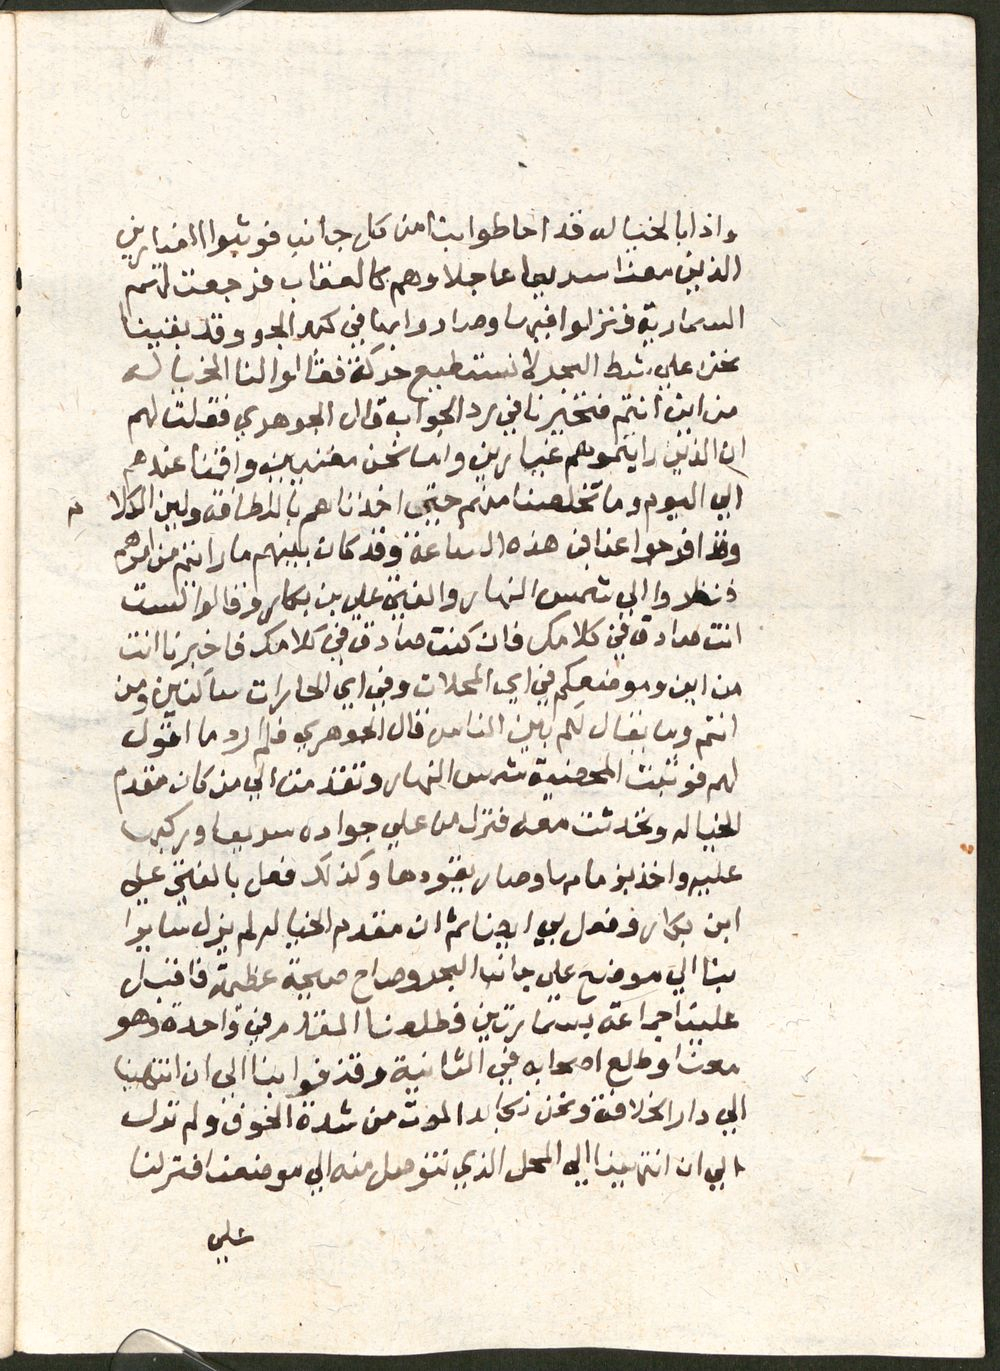 واذا بالخياله قد احاطوا بنا من كل جانب فوثبوا العيارين
الذين معنا سريعا عاجلا وهم كالعقاب فرجعت لهم
السمارية فنزلوا فيها وصاروا بها في كبد البحر وقد بقينا
نحن علي شط البحر لا نستطيع حركة فقالوا لنا الخياله
من اين انتم فتحيرنا في رد الجواب قال الجوهري فقلت لهم
ان الذين رايتموهم عيارين واما نحن مغنيين واقمنا عندهم
الي اليوم وما تخلصنا منهم حتي اخذناهم باللطافه ولين الكلام
وقد افرجوا عنا في هذه الساعة وقد كان بينهم ما رايتم من امرهم
فنظروا الي شمس النهار والفتي علي بن بكار وقالوا لست
انت صادق في كلامك فان كنت صادق في كلامك فاخبرنا انت
من اين وموضعكم في اي المحلات وفي اي الحارات ساكنين ومن
انتم وما يقال لكم بين الناس قال الجوهري فلم ادر ما اقول
لهم فوثبت المحضية شمس النهار وتقدمت الي من كان مقدم
الخياله وتحدثت معه فنزل من علي جواده سريعا وركبها
عليه واخذ بزمامها وصار يقودها وكذلك فعل بالفتي علي
ابن بكار وفعل بي ايضا ثم ان مقدم الخياله لم يزل سايرا
بنا الي موضع علي جانب البحر وصاح صيحة عظيمة فاقبل
علينا جماعة بسمارتين فطلعنا المقدم في واحدة وهو
معنا وطلع اصحابه في الثانية وقذفوا بنا الي ان انتهينا
الي دار الخلافة ونحن نكابد الموت من شدة الخوف ولم نزل
الي ان انتهينا الي المحل الذي نتوصل منه الي موضعنا فنزلنا
علي